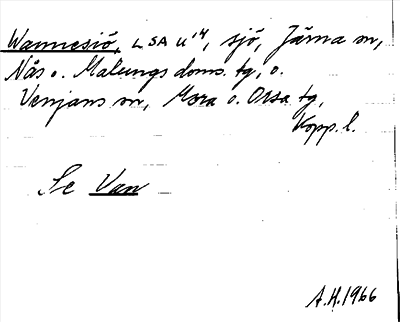 Wannesiö, LSA U¹⁴, sjö, Järna sn,
Nås o. Malungs doms. tg, o.
Venjans sn, Mora o. Orsa tg,
Kopp. l.
Se Van
A.H. 1966